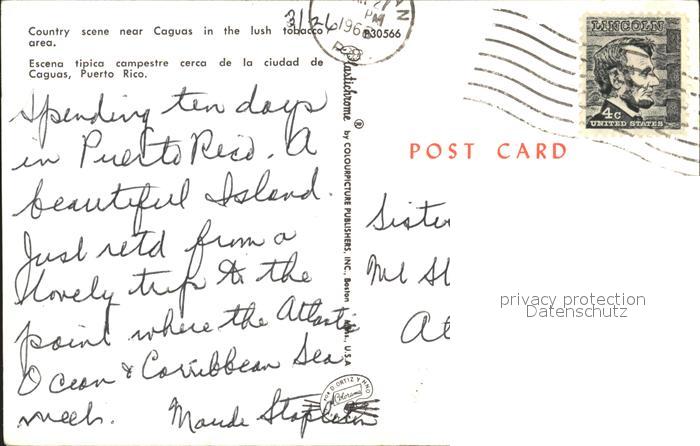 Country scene near Caguas in the lush tobacco
area.
Escena tipica campestre cerca de la ciudad de
Caguas, Puerto Rico.
3/26/196
PM
B30566
Spending ten days
in Puerto Rico. A
beautiful Island.
Just retd from a
lovely trip to the
point where the Atlantic
Ocean & Carribbean Sea
meet. Maude Stapleton
Plastichrome ® by COLOURPICTURE PUBLISHERS, INC., Boston Mass., U.S.A
LINCOLN
4c
UNITED STATES
POST CARD
Sister
Mt St
At
privacy protection
Datenschutz